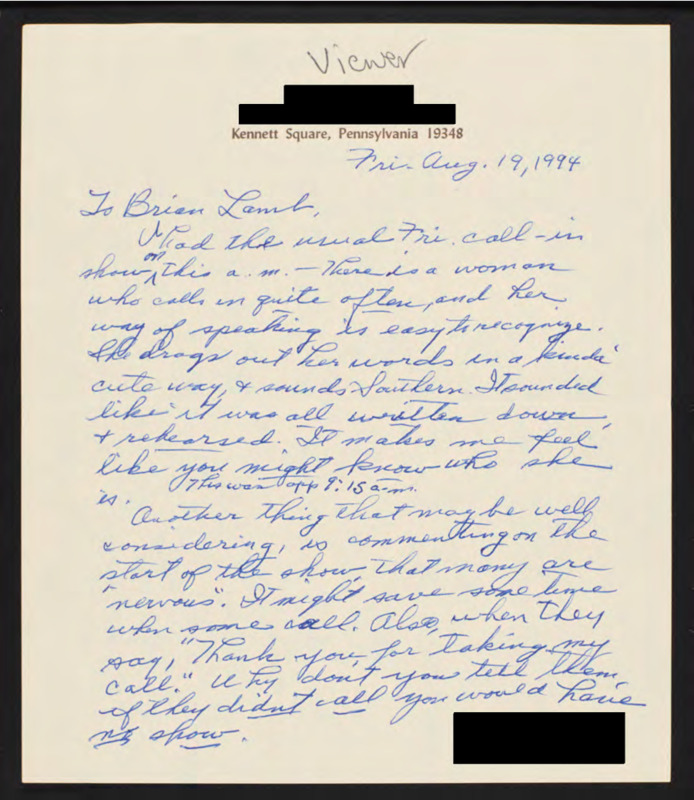 Viewer
Kennett Square, Pennsylvania 19348
Fri. Aug. 19, 1994
To Brian Lamb,
Had the usual Fri. call-in
show on this a.m. — There is a woman
who calls in quite often, and her
way of speaking is easy to recognize.
She drags out her words in a "kinda"
cute way, & sounds Southern. It sounded
like it was all written down,
& rehearsed. It makes me feel
like you might know who she
is. This was app 9:15 a.m.
Another thing that may be well
considering, is commenting on the
start of the show, that many are
"nervous". It might save some time
when some call. Also, when they
say, "Thank you, for taking my
call." Why don't you tell them,
if they didn't call you would have
no show.